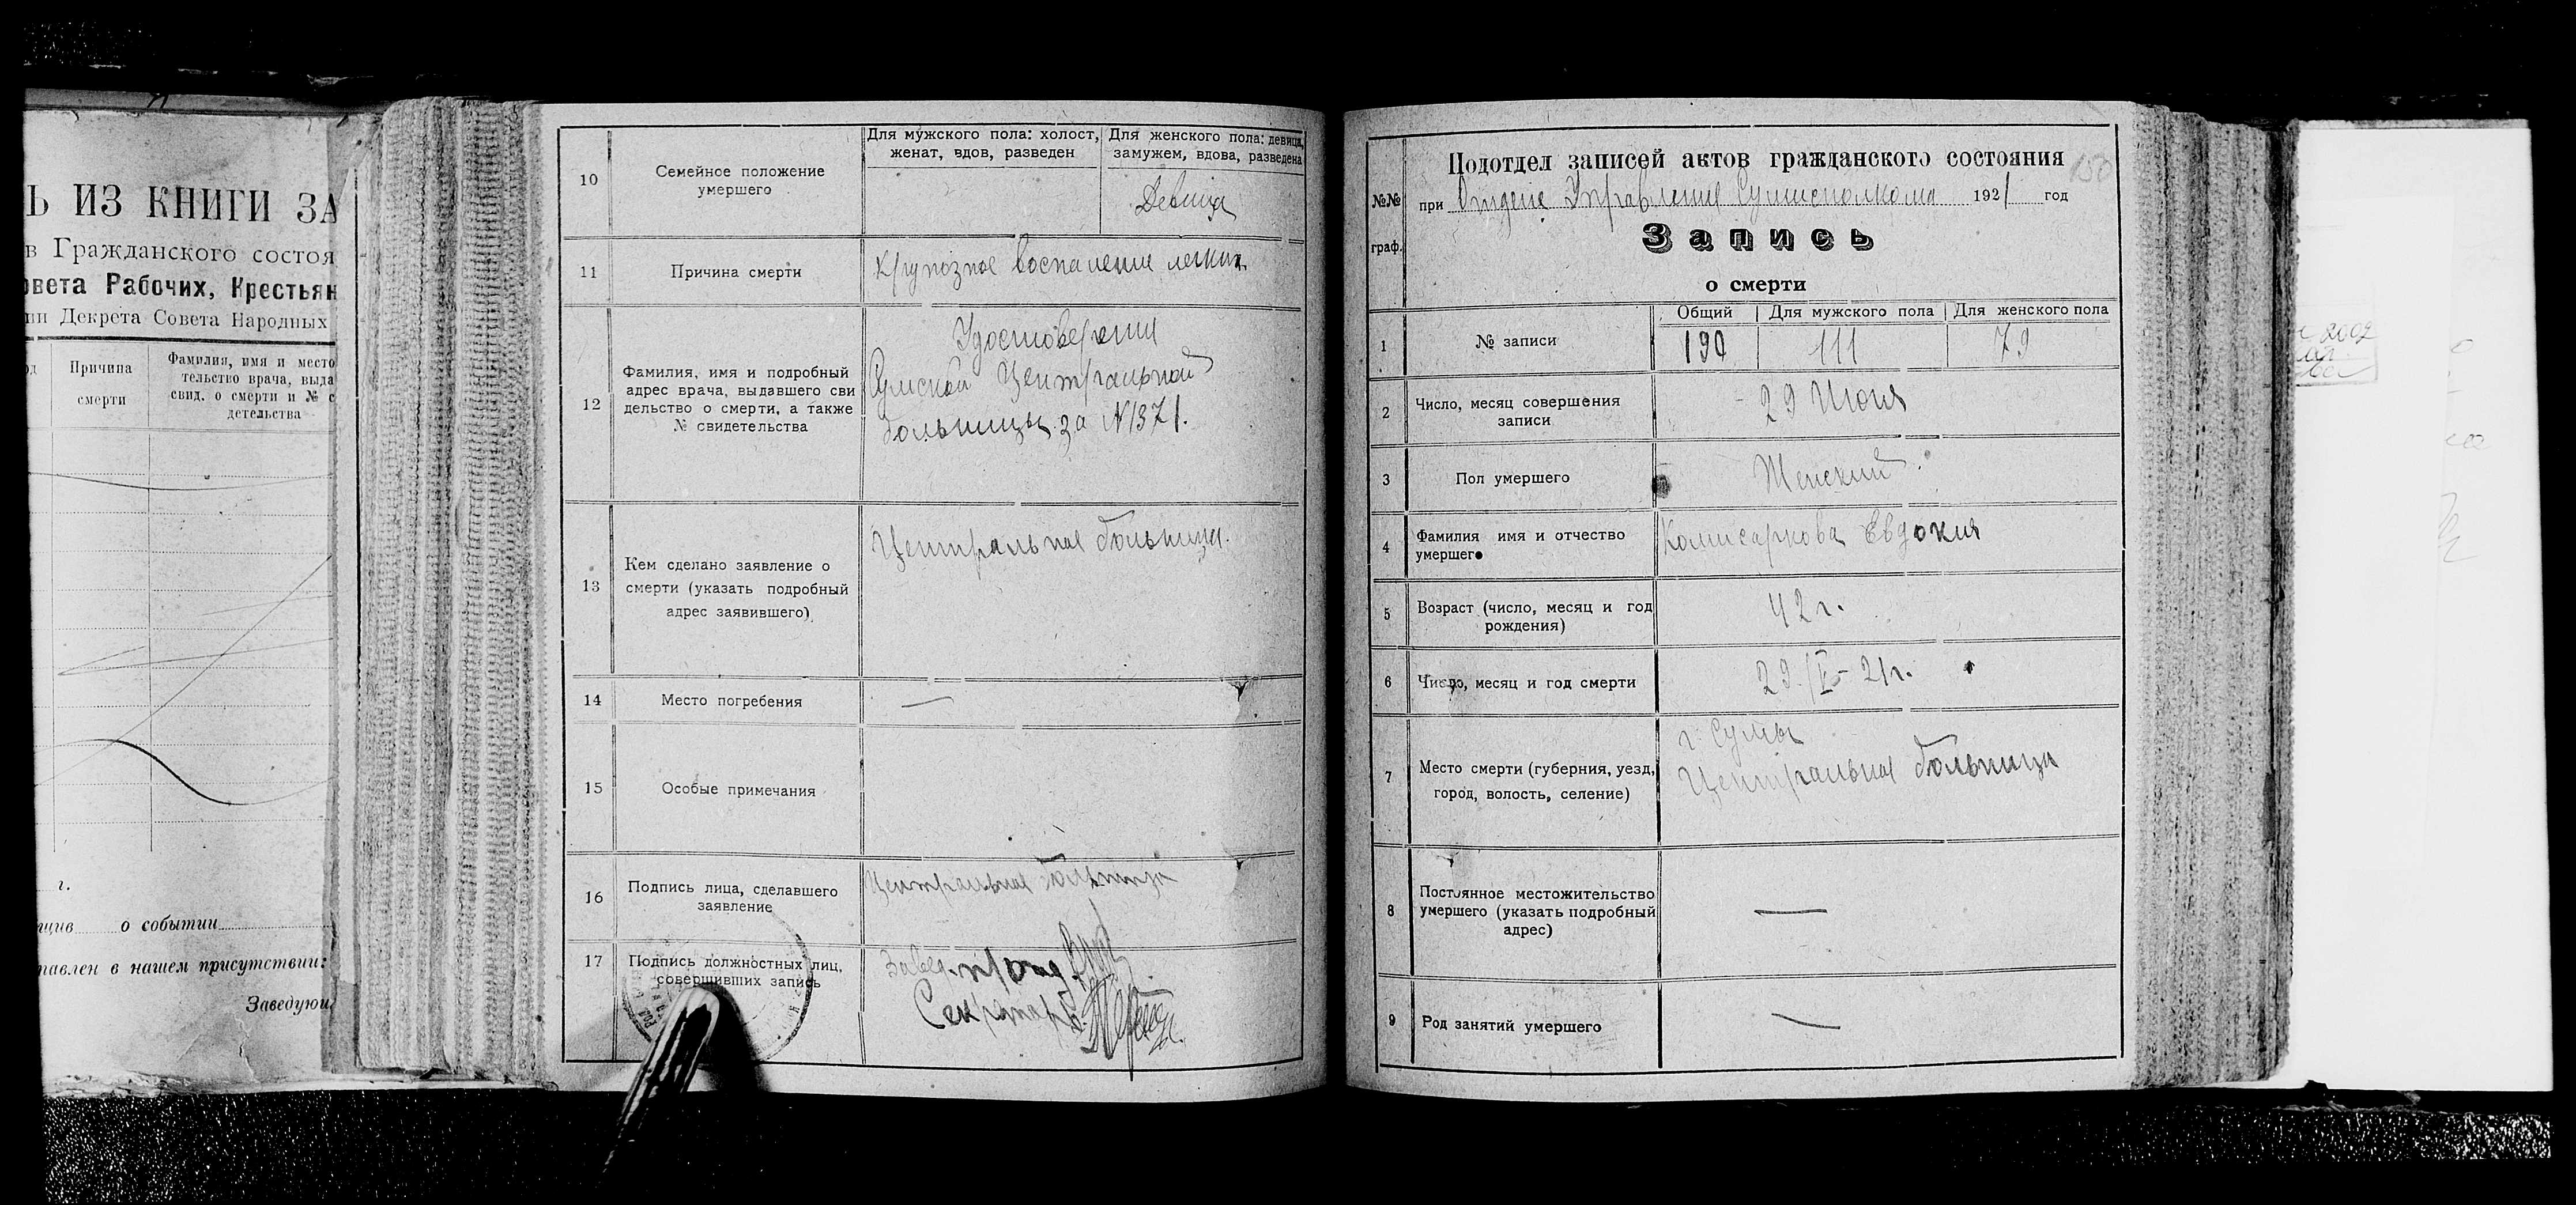 Ь ИЗ КНИГИ ЗА
в Гражданского состоя
овета Рабочих, Крестьян
ии Декрета Совета Народных
Причина
смерти
Фамилия, имя и место
тельство врача, выда
свид. о смерти и № с
детельства
г.
щив о событии
тавлен в нашем присутствии:
Заведующ
10
Семейное положение
умершего
Для мужского пола: холост,
женат, вдов, разведен
Для женского пола: девица,
замужем, вдова, разведена
Девица
11
Причина смерти
Крупозное воспаление легких
12
Фамилия, имя и подробный
адрес врача, выдавшего сви
дельство о смерти, а также
№ свидетельства
Удостоверении
Сумской Центральной
больницы за №1371.
13
Кем сделано заявление о
смерти (указать подробный
адрес заявившего)
Центральная больница.
14
Место погребения
—
15
Особые примечания
16
Подпись лица, сделавшего
заявление
Центральная больница
17
Подпись должностных лиц,
совершивших запись
Завед. п/отд.
Секретарь
№№
граф.
Подотдел записей актов гражданского состояния
150
при Отделе Управления Сумисполкома 1921 год
Запись
о смерти
1
№ записи
Общий
Для мужского пола
Для женского пола
190
111
79
2
Число, месяц совершения
записи
29 Июня
3
Пол умершего
Женский.
4
Фамилия имя и отчество
умершего
Комисаркова Евдокия
5
Возраст (число, месяц и год
рождения)
42 г.
6
Число, месяц и год смерти
29/V – 21г.
7
Место смерти (губерния, уезд,
город, волость, селение)
г. Сумы
Центральная больница
8
Постоянное местожительство
умершего (указать подробный
адрес)
—
9
Род занятий умершего
—
2002